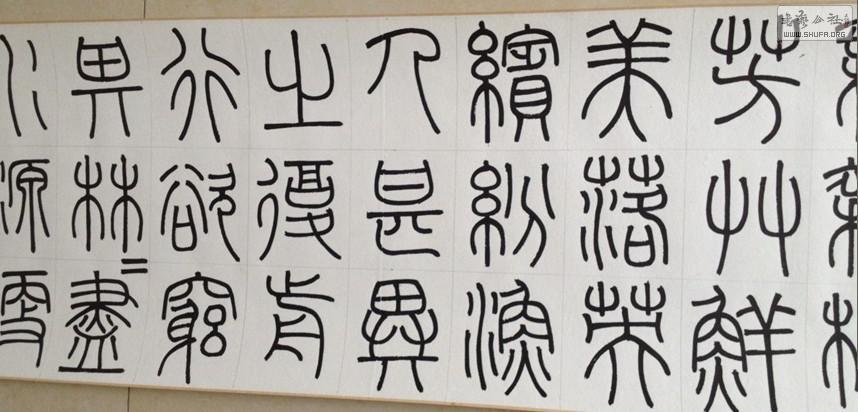 芳草鮮
美落英
繽紛漁
人甚異
之復前
行欲窮
其林=盡
水源
书艺公社
WWW.SHUFA.ORG